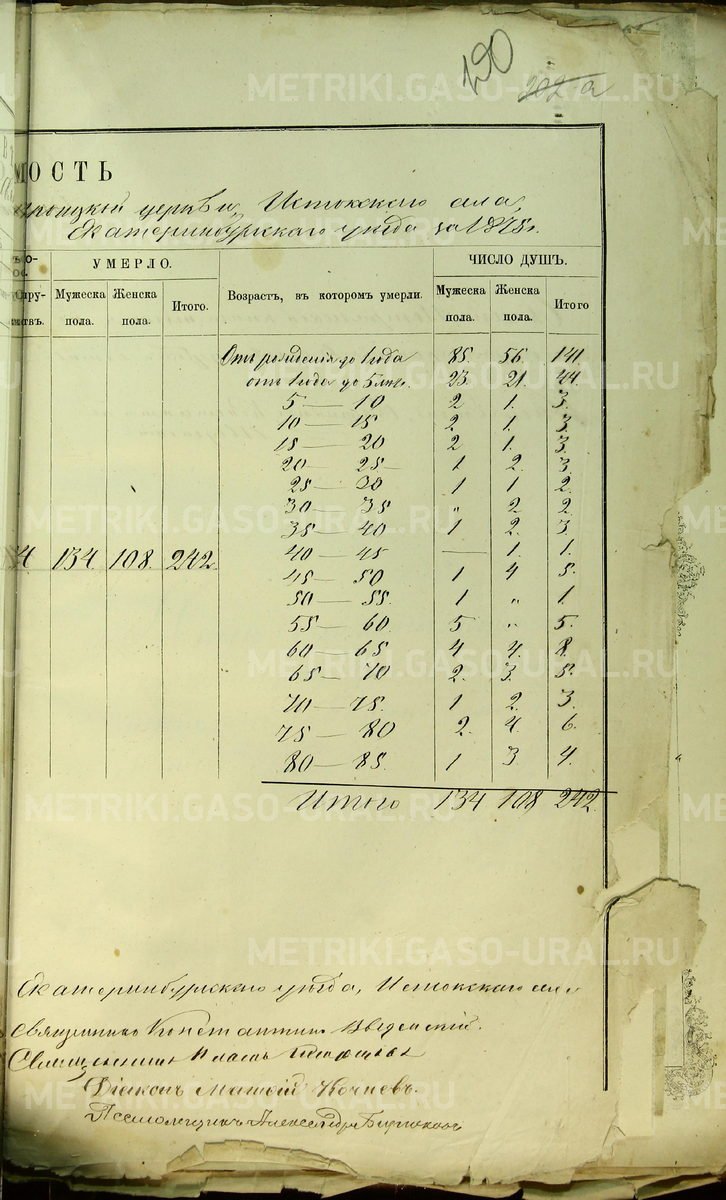 190
202 а
МОСТЬ
Троицкой церкви, Истокского села,
Екатеринбургского уѣзда за 1875 г.
УМЕРЛО. ЧИСЛО ДУШЪ.
Мужеска пола. Женска пола. Итого. Возрастъ, въ которомъ умерли. Мужеска пола. Женска пола. Итого
Отъ рожденія до 1 года 85. 56. 141.
отъ 1 года до 5 лѣт. 23. 21. 44.
5 — 10 2 1. 3.
10 — 15 2 1. 3.
15 — 20 2 1. 3.
20 — 25 1 2. 3.
25 — 30 1 1 2.
30 — 35 " 2 2.
35 — 40 1 2. 3.
4 134 108. 242. 40 — 45 — 1. 1.
45 — 50 1 4 5.
50 — 55. 1 " 1.
55 — 60. 5 " 5.
60 — 65 4 4. 8.
65 — 70 2. 3. 5.
70 — 75. 1 2 3.
75 — 80 2. 4. 6.
80 — 85. 1 3 4.
Итого 134 108 242.
Екатеринбургского уѣзда, Истокского села
Священникъ Константинъ Введенскій.
Священникъ
Діаконъ Матѳій Кочневъ.
Псаломщикъ Александръ
METRIKI.GASO-URAL.RU